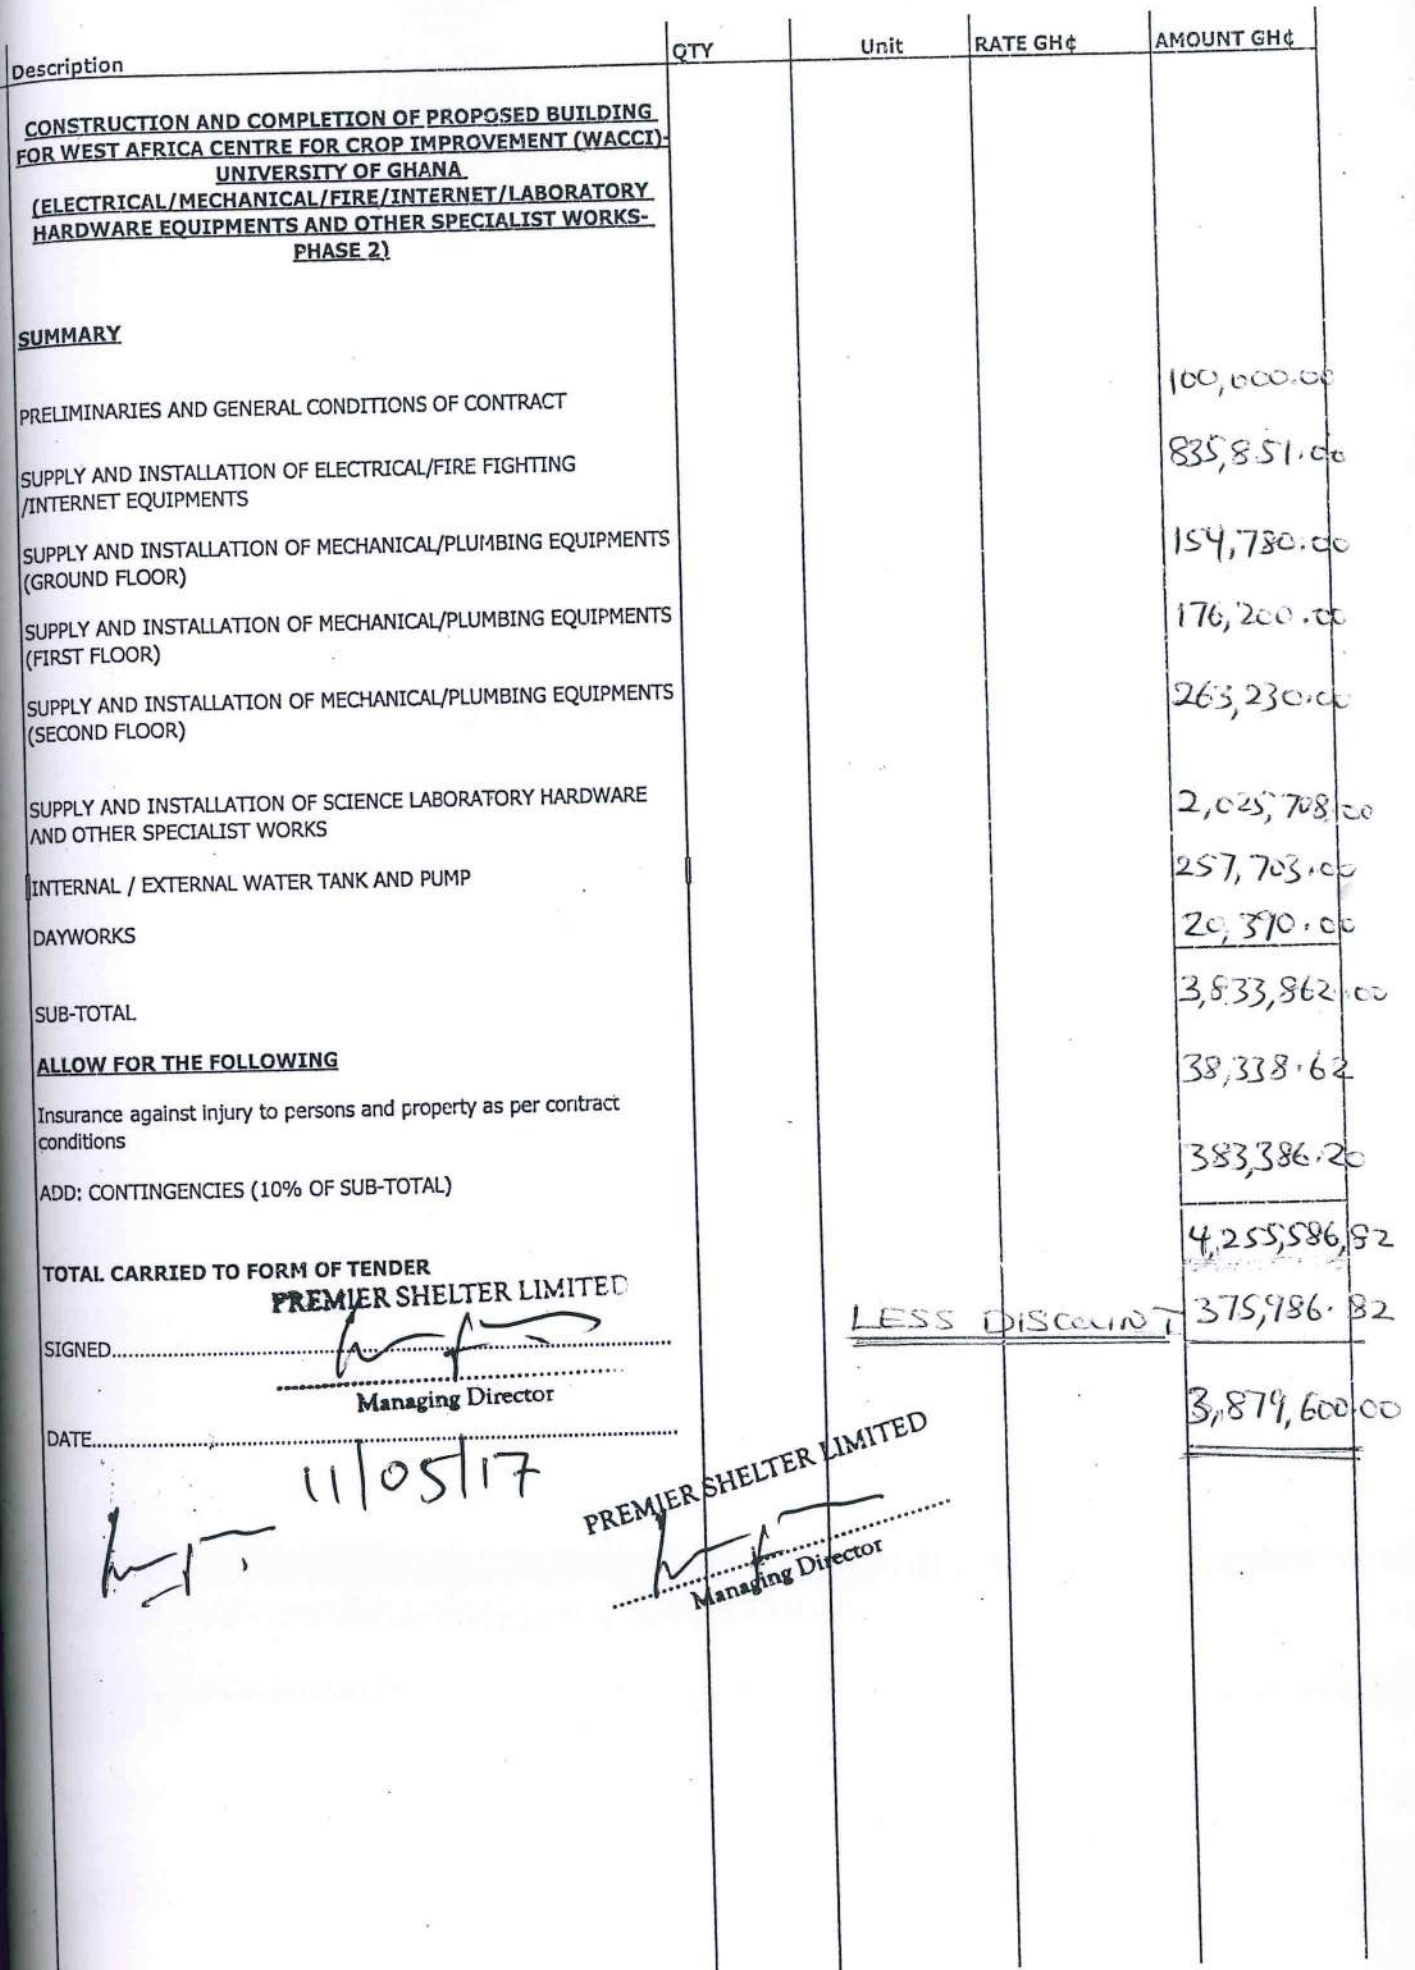 Description QTY Unit RATE GH¢ AMOUNT GH¢
CONSTRUCTION AND COMPLETION OF PROPOSED BUILDING
FOR WEST AFRICA CENTRE FOR CROP IMPROVEMENT (WACCI)-
UNIVERSITY OF GHANA
(ELECTRICAL/MECHANICAL/FIRE/INTERNET/LABORATORY
HARDWARE EQUIPMENTS AND OTHER SPECIALIST WORKS-
PHASE 2)
SUMMARY
PRELIMINARIES AND GENERAL CONDITIONS OF CONTRACT 100,000.00
SUPPLY AND INSTALLATION OF ELECTRICAL/FIRE FIGHTING 835,851.00
/INTERNET EQUIPMENTS
SUPPLY AND INSTALLATION OF MECHANICAL/PLUMBING EQUIPMENTS 154,780.00
(GROUND FLOOR)
SUPPLY AND INSTALLATION OF MECHANICAL/PLUMBING EQUIPMENTS 176,200.00
(FIRST FLOOR)
SUPPLY AND INSTALLATION OF MECHANICAL/PLUMBING EQUIPMENTS 263,230.00
(SECOND FLOOR)
SUPPLY AND INSTALLATION OF SCIENCE LABORATORY HARDWARE 2,025,708.00
AND OTHER SPECIALIST WORKS
INTERNAL / EXTERNAL WATER TANK AND PUMP 257,703.00
DAYWORKS 20,390.00
SUB-TOTAL 3,833,862.00
ALLOW FOR THE FOLLOWING
Insurance against injury to persons and property as per contract 38,338.62
conditions
ADD: CONTINGENCIES (10% OF SUB-TOTAL) 383,386.20
TOTAL CARRIED TO FORM OF TENDER 4,255,586.82
PREMIER SHELTER LIMITED
LESS DISCOUNT 375,986.82
SIGNED
Managing Director
3,879,600.00
DATE
11/05/17
PREMIER SHELTER LIMITED
Managing Director